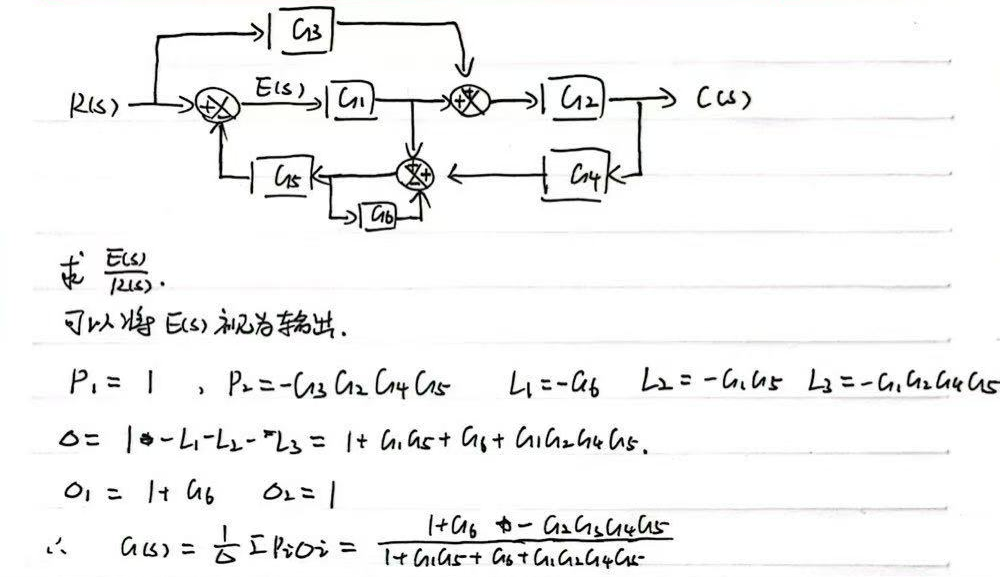 G3
R(s) + E(s) G1 + + G2 C(s)
G5 + G4
G6
求 E(s)/R(s).
可以将 E(s) 视为输出.
P1 = 1 , P2 = -G3 G2 G4 G5 L1 = -G6 L2 = -G1 G5 L3 = -G1 G2 G4 G5
Δ = 1 - L1 - L2 - L3 = 1 + G1 G5 + G6 + G1 G2 G4 G5.
Δ1 = 1 + G6 Δ2 = 1
∴ G(s) = 1/Δ Σ Pi Δi = (1 + G6 - G2 G3 G4 G5)/(1 + G1 G5 + G6 + G1 G2 G4 G5)